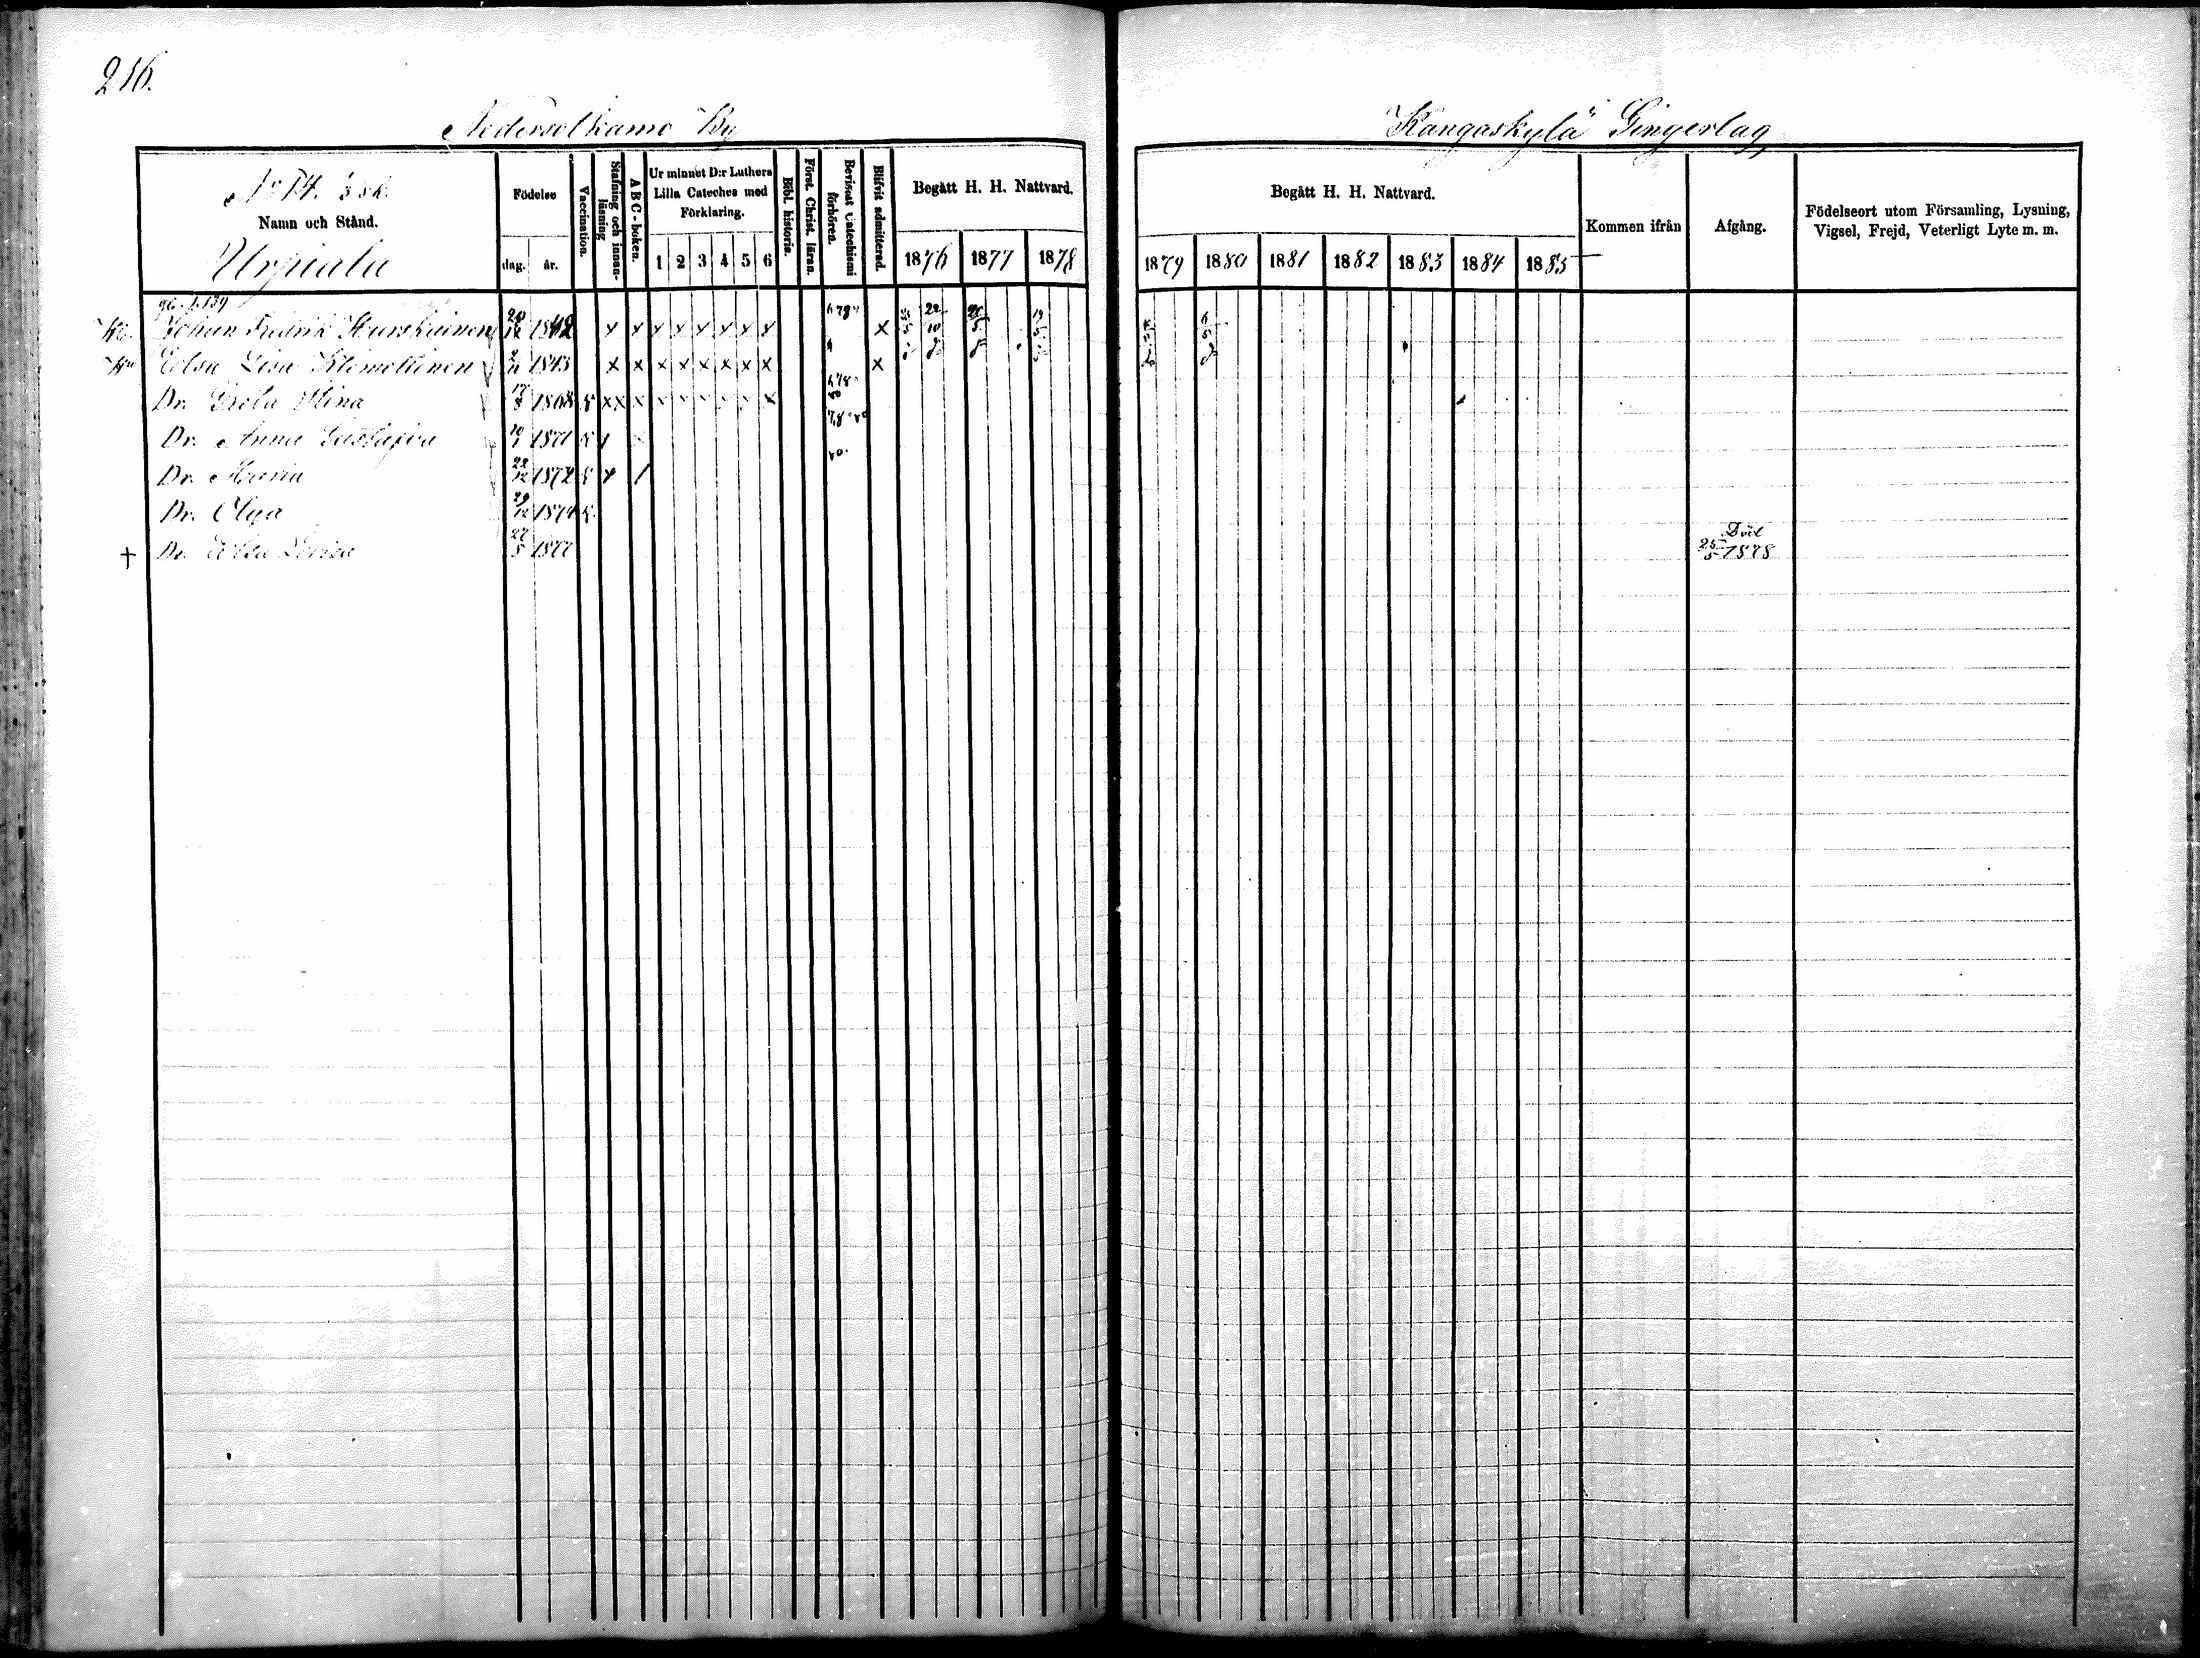 216.
Nedersolkamo By
"Kangaskylä" Gingerlag,
No 14. 3 sk.
Namn och Stånd.
Urpiala
Födelse
dag. år.
Vaccination.
Stafning och innanläsning
ABC-boken.
Ur minnet D:r Luthers Lilla Cateches med Förklaring.
1 2 3 4 5 6
Bibl. historia.
Först. Christ. läran.
Bevisnat Catechismi förhören.
Blifvit admitterad.
Begått H. H. Nattvard.
1876 1877 1878
Begått H. H. Nattvard.
1879 1880 1881 1882 1883 1884 1885
Kommen ifrån
Afgång.
Födelseort utom Församling, Lysning, Vigsel, Frejd, Veterligt Lyte m. m.
Johan Fredrik Hurskainen 1842 x x x x x x x x x
Eelsa Lisa Klemettinen 1843 x x x x x x x x x
Dr. Greta Stina 1868
Dr. Anna Gustafva 1871
Dr. Maria 22/12 1872
Dr. Olga 29/12 1874
† Dr. Elsa 27/5 1877 Död 25/5 1878